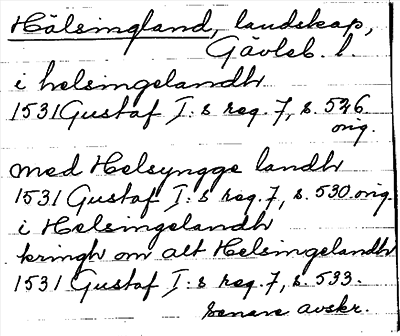 Hälsingland, landskap,
Gävleb. l.
i helsingelandh
1531 Gustaf I:s reg. 7, s. 526.
orig.
med Helsyngge landh
1531 Gustaf I:s reg. 7, s. 530 orig.
i Helsingelandh
kringh om alt Helsingelandh
1531 Gustaf I:s reg. 7, s. 533.
senare avskr.